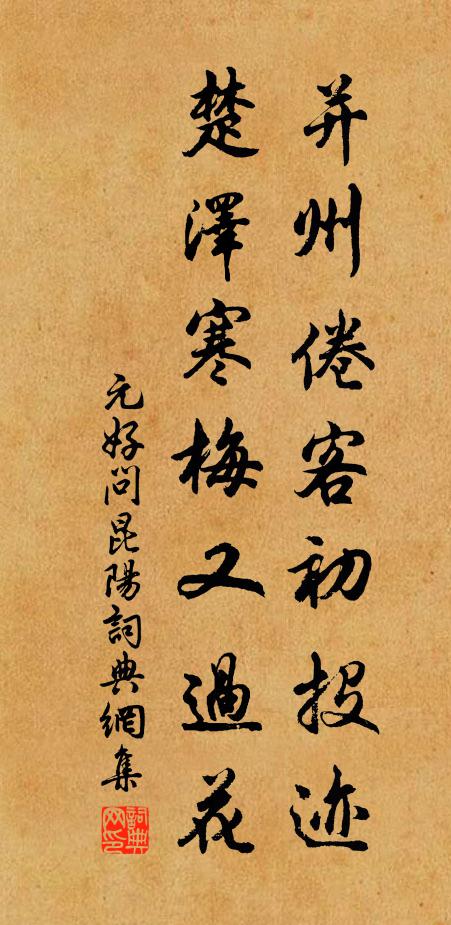 并州倦客初投迹
楚澤寒梅又過花
元好問昆陽詞典網集
詞典網印